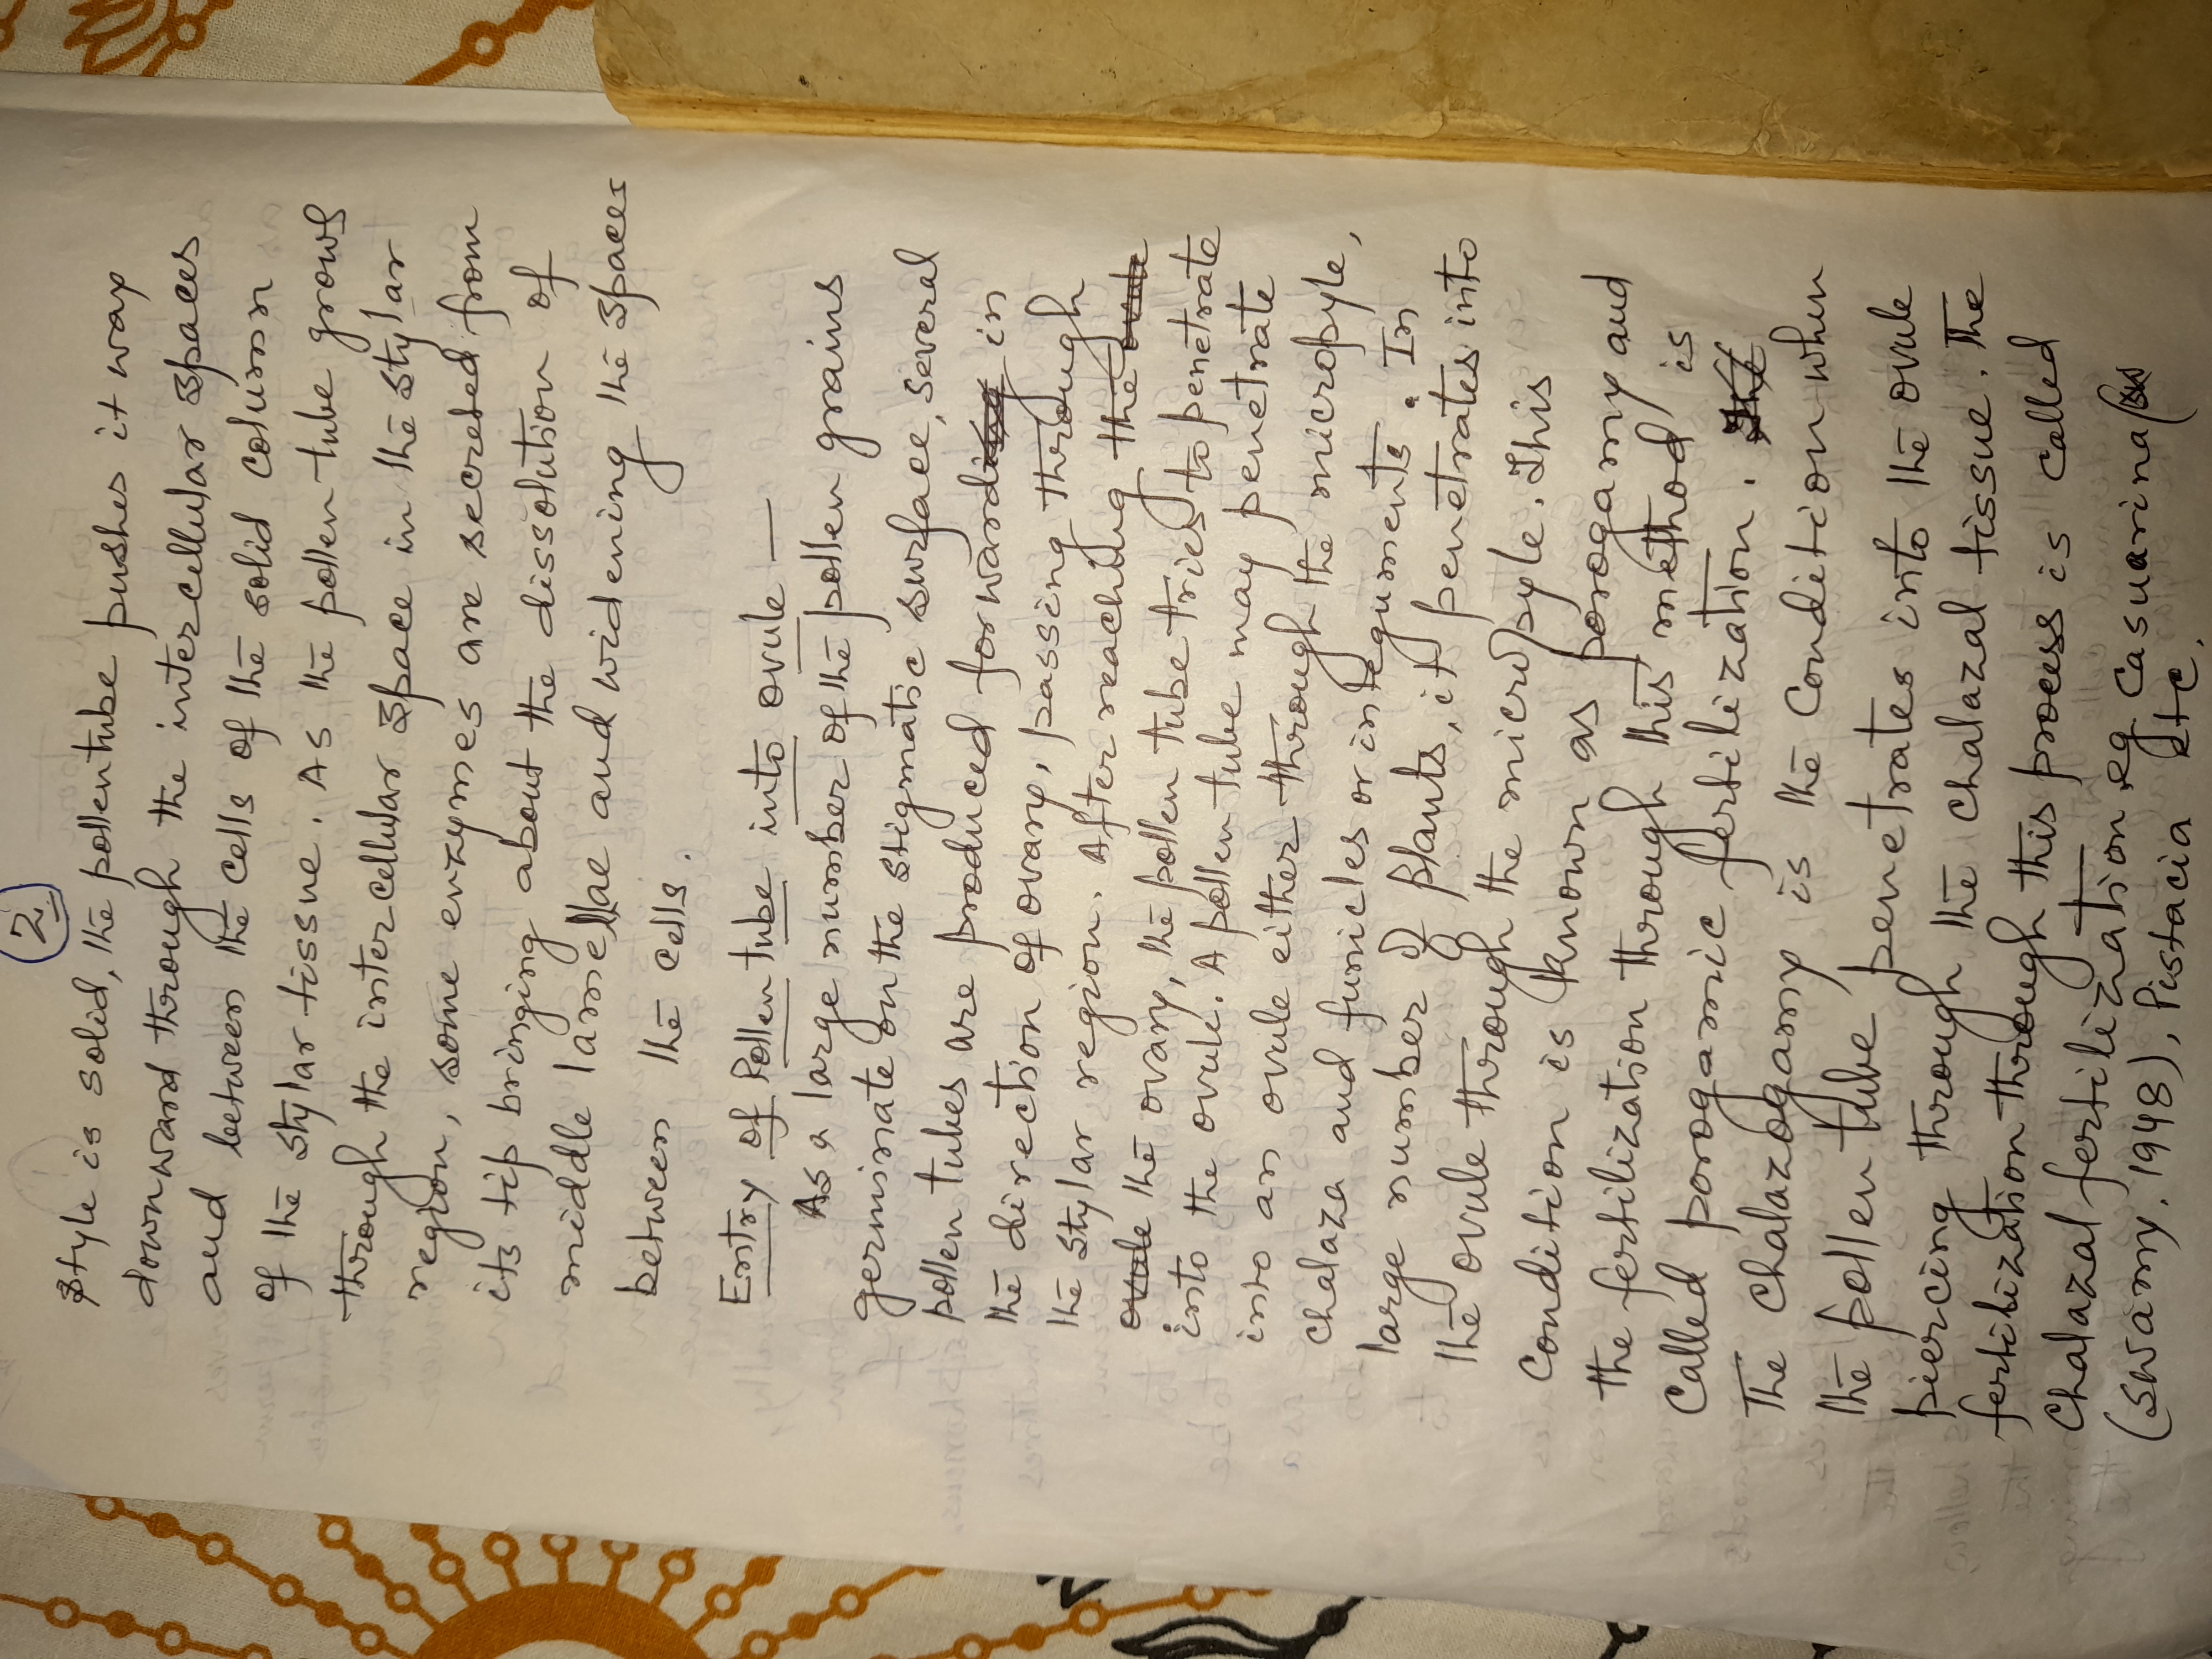 2.
style is solid, the pollentube pushes it way
downward through the intercellular spaces
and between the cells of the solid column
of the stylar tissue. As the pollen tube grows
through the intercellular space in the stylar
region, some enzymes are secreted from
its tip bringing about the dissolution of
middle lamellae and widening the spaces
between the cells.
Entry of Pollen tube into ovule —
As a large number of the pollen grains
germinate on the stigmatic surface, several
pollen tubes are produced forward in
the direction of ovary, passing through
the stylar region. After reaching the
the ovary, the pollen tube tries to penetrate
into the ovule. A pollen tube may penetrate
into an ovule either through the micropyle,
chalaza and funicles or integuments. In
large number of plants, it penetrates into
the ovule through the micropyle. This
condition is known as porogamy and
the fertilization through this method is
called porogamic fertilization.
The chalazogamy is the condition when
the pollen tube penetrates into the ovule
piercing through the chalazal tissue. The
fertilization through this process is called
chalazal fertilization eg Casuarina
(Swamy. 1948), Pistacia etc.